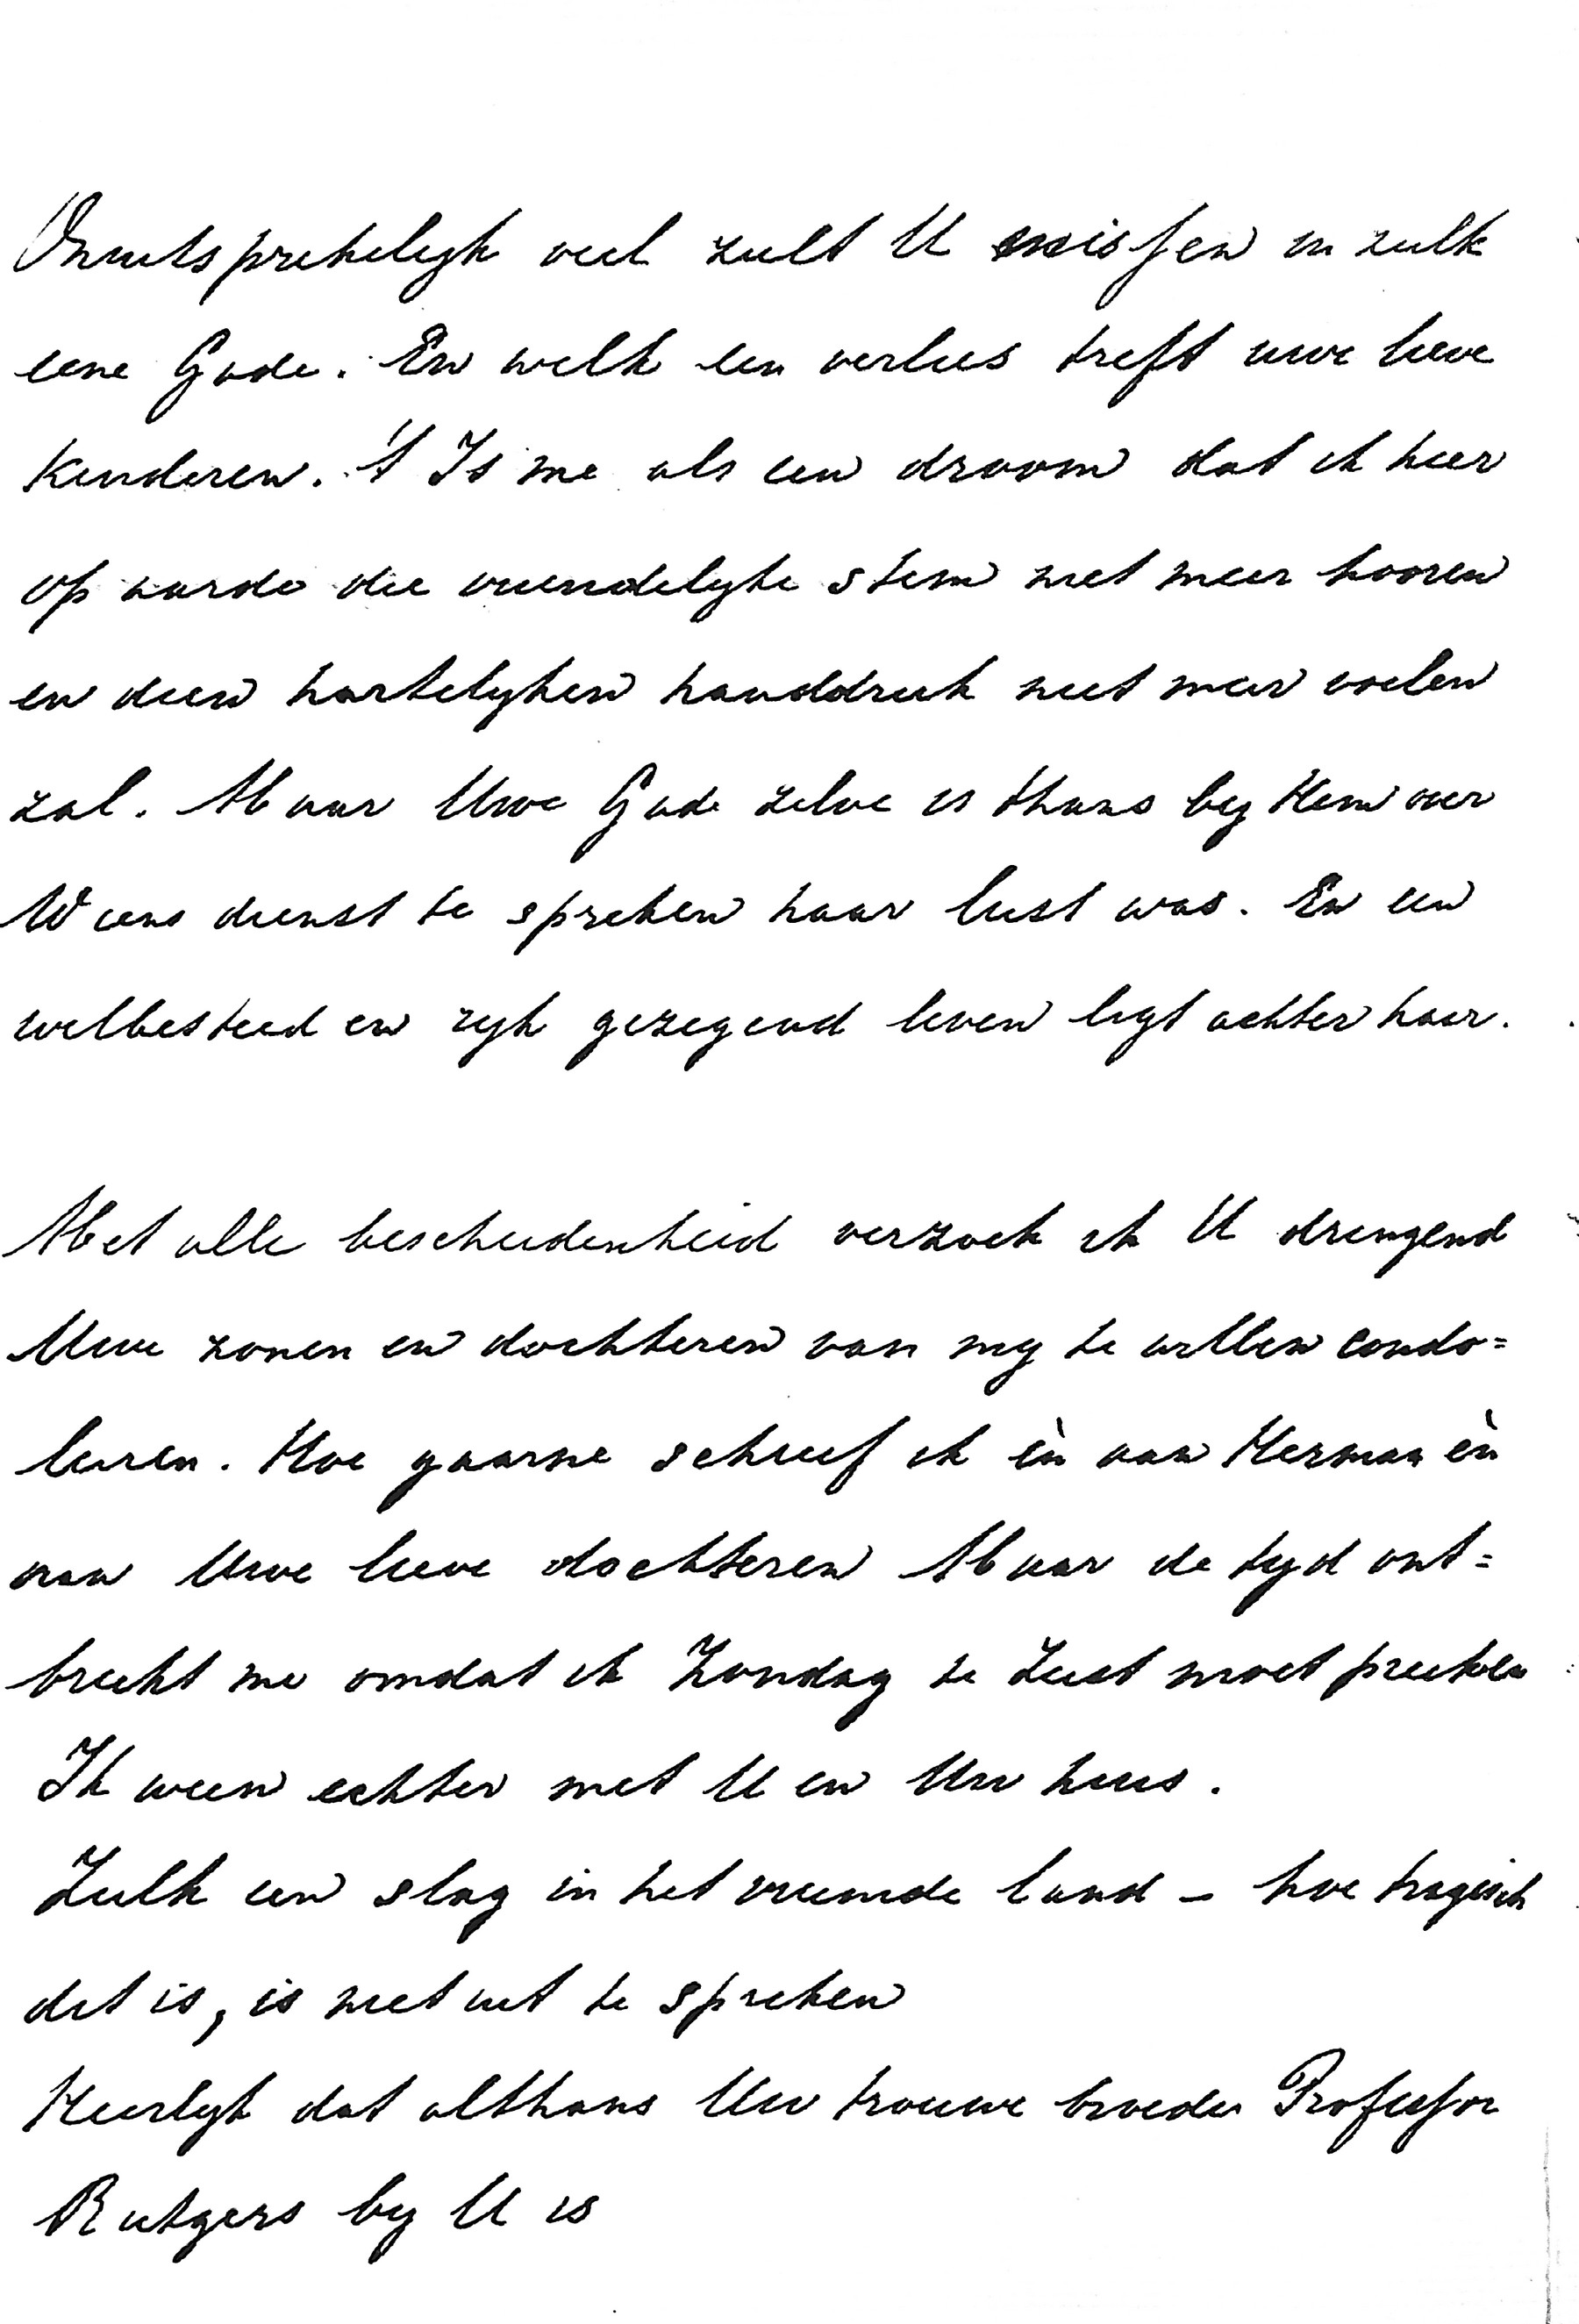 Onuitsprekelijk veel zult U missen in zulk
eene Gade. En welk een verlies treft uwe lieve
Kinderen. 't Is me als een droom dat ik hier
op aarde die vriendelijke stem niet meer hooren
en dien hartelijken handdruk niet meer voelen
zal. Maar Uwe Gade zelve is thans bij Hem over
Wiens dienst te spreken haar lust was. En een
welbesteed en rijk gezegend leven ligt achter haar.
Met alle bescheidenheid verzoek ik U dringend
Uwe zonen en dochteren van mij te willen condo=
leeren. Hoe gaarne schreef ik èn aan Herman èn
aan Uwe lieve dochteren Maar de tijd ont=
breekt me omdat ik Zondag te Zeist moet preeken
Ik ween echter met U en Uw huis.
Zulk een slag in het vreemde land – hoe tragisch
dit is, is niet uit te spreken
Heerlijk dat althans Uw trouwe broeder Professor
Rutgers bij U is